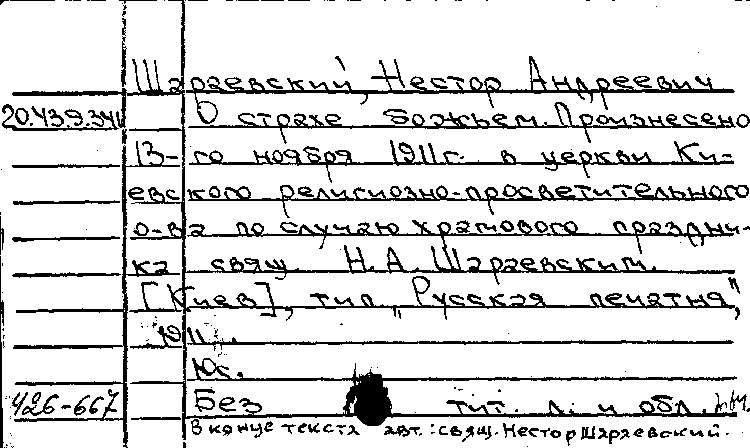 Шараевский, Нестор Андреевич
20.43.9.341 О страхе божьем. Произнесено
13-го ноября 1911г. в церкви Ки-
евского религиозно-просветительного
о-ва по случаю храмового праздни-
ка свящ. Н.А. Шараевским.
[Киев], тип. „Русская печатня",
1911.
Юс.
426-667 Без тит. л. и обл.
В конце текста авт.: свящ. Нестор Шараевский.